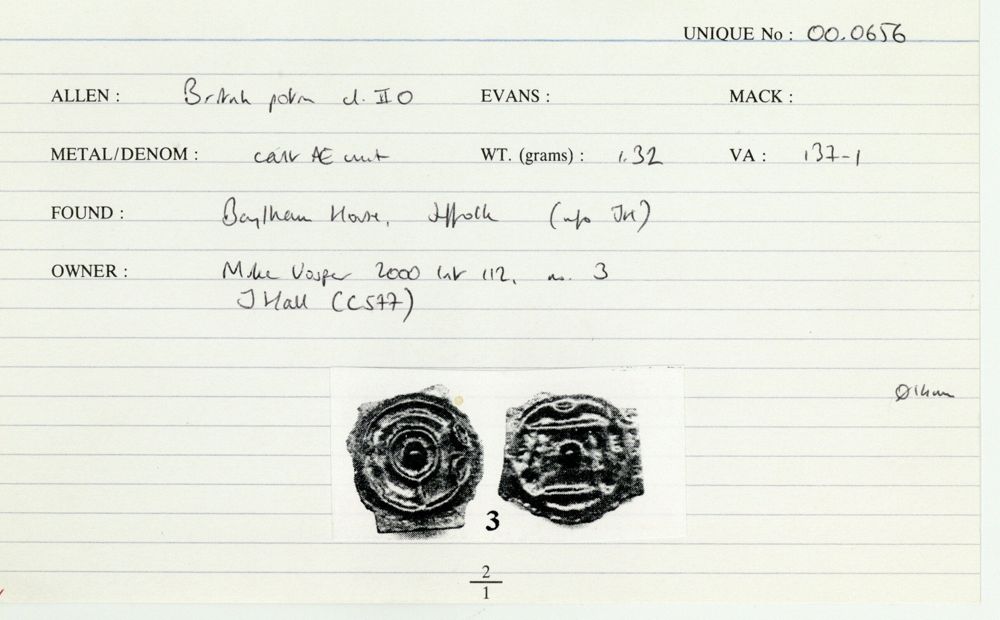 UNIQUE No : 00.0656
ALLEN : British potin cl. II O EVANS : MACK :
METAL/DENOM : cast AE unit WT. (grams) : 1.32 VA : 137-1
FOUND : Baylham House, Suffolk (info JH)
OWNER : Mike Vosper 2000 list 112, no. 3
J Hall (C577)
3
2
1